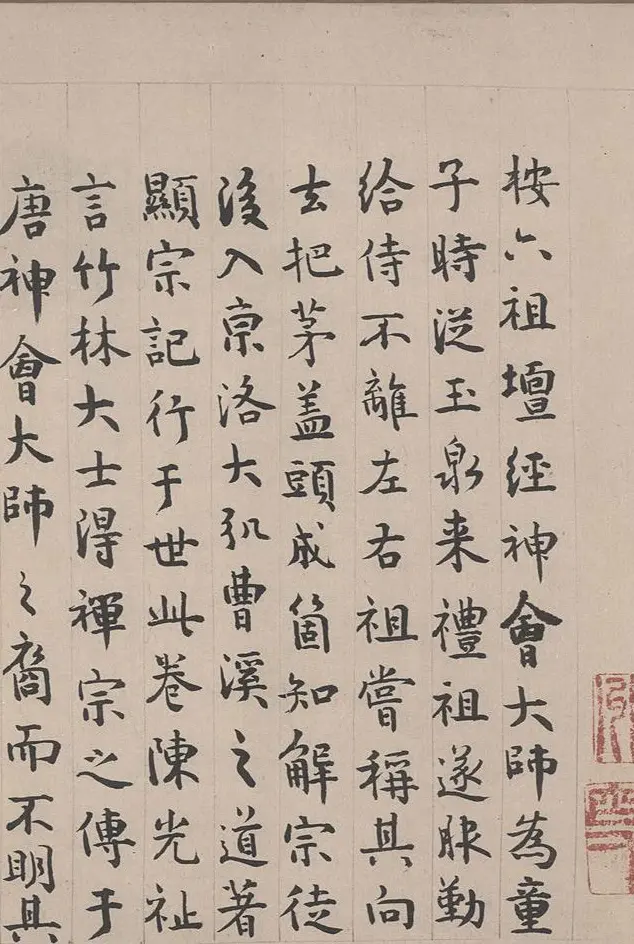 按六祖壇經神會大師為童
子時從玉泉来禮祖遂服勤
給侍不離左右祖嘗稱其向
去把茅盖頭成箇知解宗徒
後入京洛大弘曹溪之道著
顯宗記行于世此卷陳光祉
言竹林大士得禪宗之傳于
唐神會大師之裔而不明其